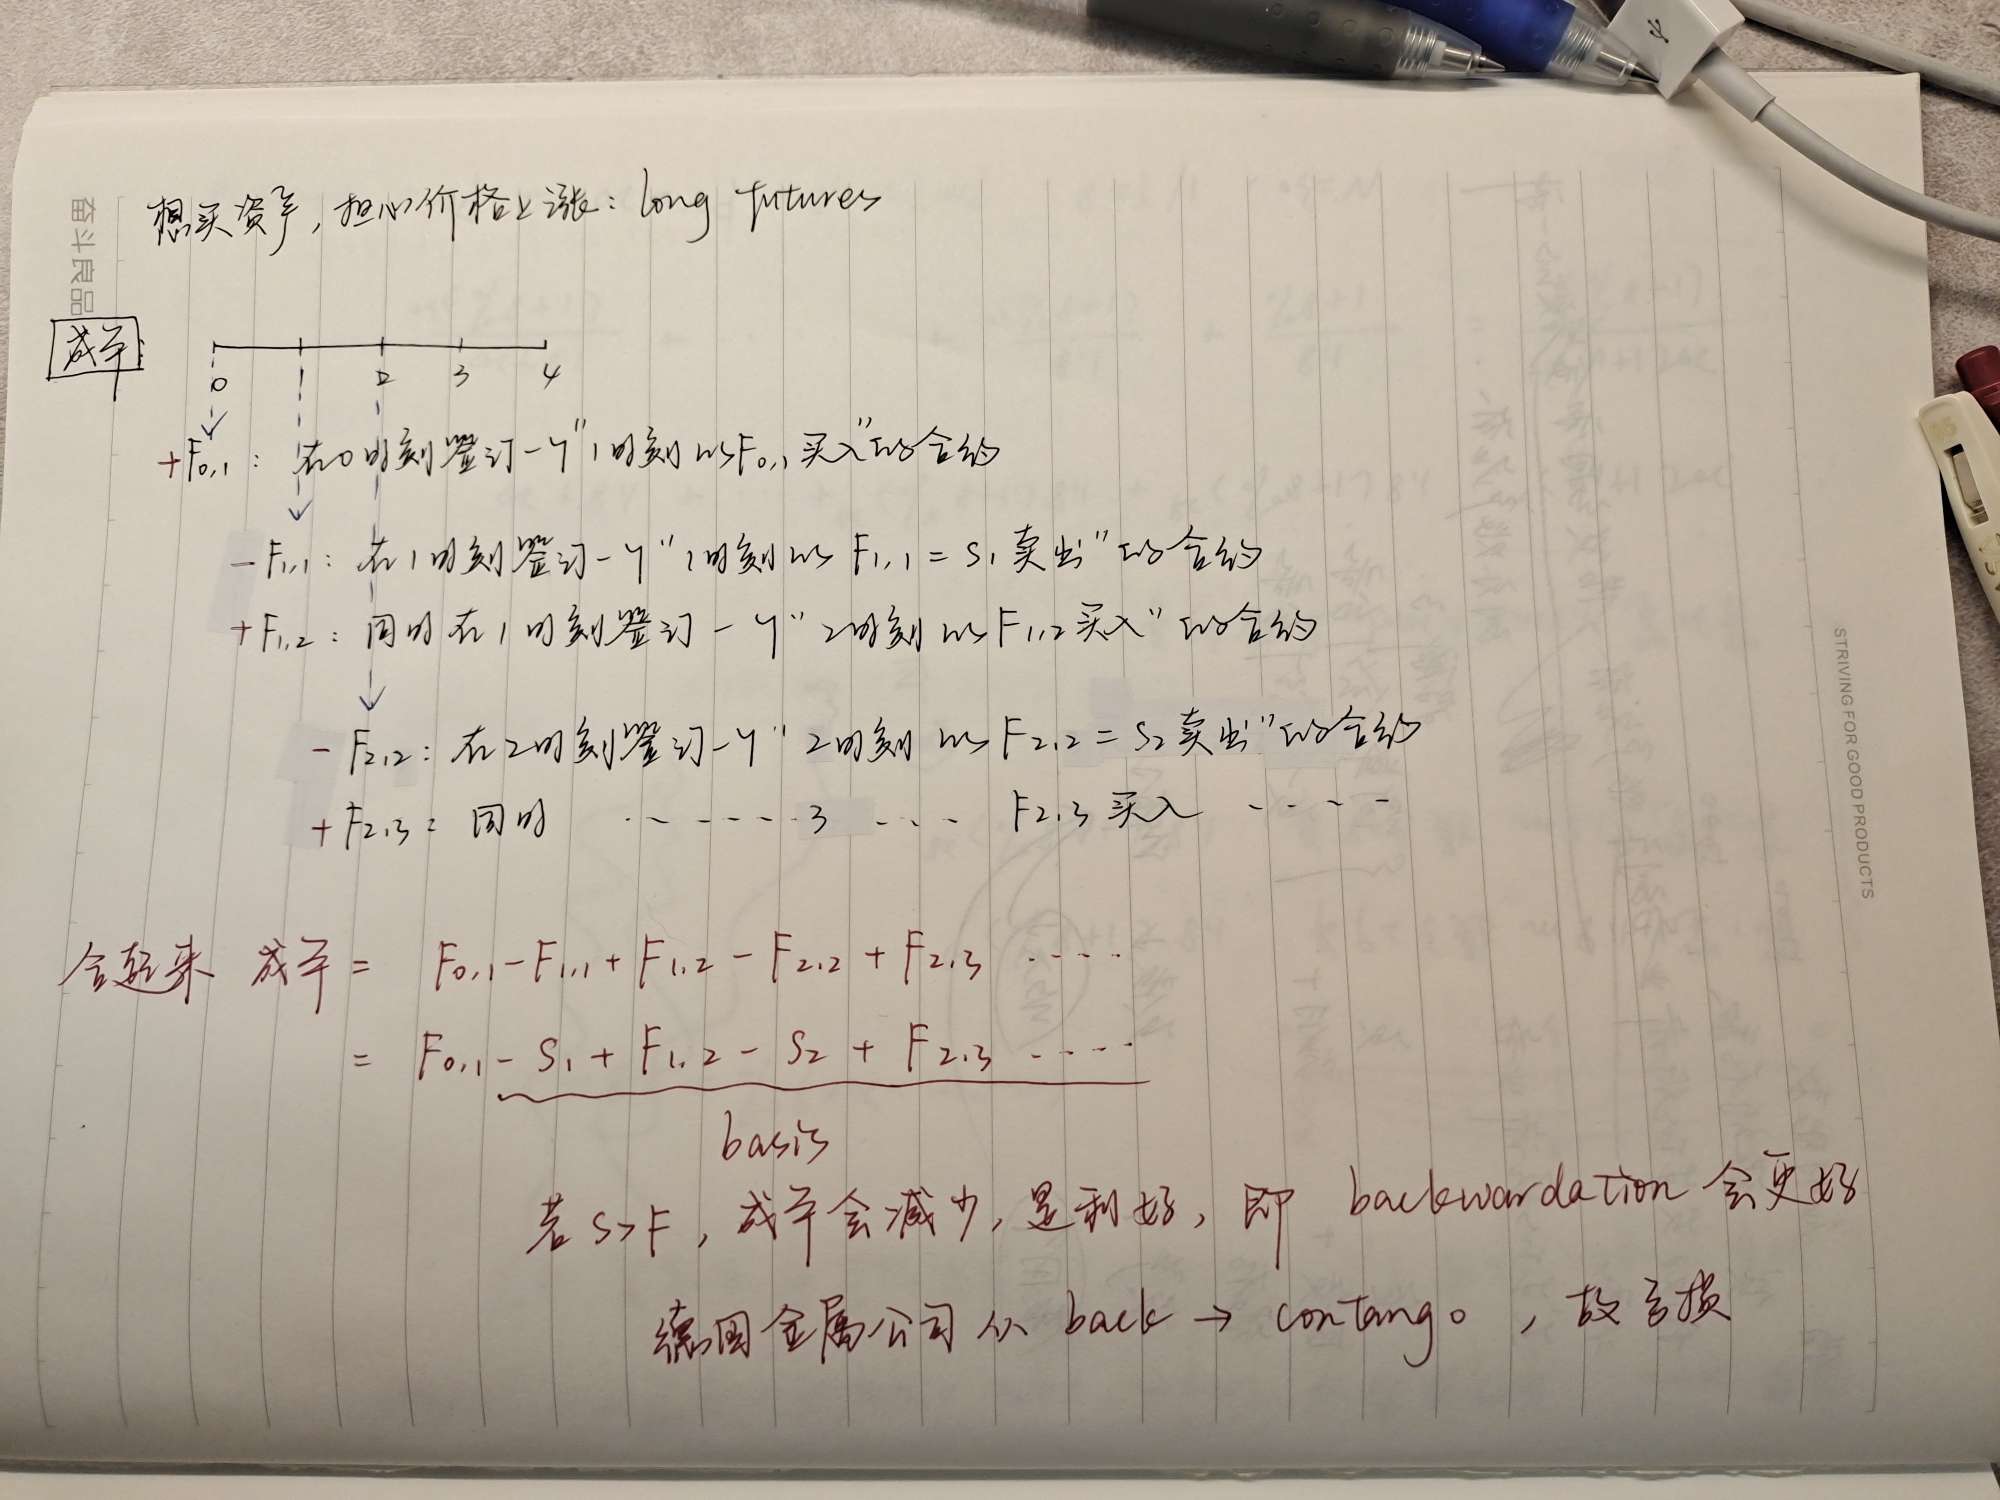 奋斗良品
想买资产,担心价格上涨: long futures
成本
0 1 2 3 4
+F0,1: 在0时刻签订一个"1时刻以F0,1买入"的合约
-F1,1: 在1时刻签订一个"1时刻以F1,1=S1卖出"的合约
+F1,2: 同时在1时刻签订一个"2时刻以F1,2买入"的合约
-F2,2: 在2时刻签订一个"2时刻以F2,2=S2卖出"的合约
+F2,3: 同时 ······ 3 ··· F2,3买入 ····
合起来 成本 = F0,1-F1,1+F1,2-F2,2+F2,3 ····
= F0,1-S1+F1,2-S2+F2,3 ····
basis
若S>F,成本会减少,是利好,即 backwardation 会更好
德国金属公司从 back → contango,故亏损
STRIVING FOR GOOD PRODUCTS